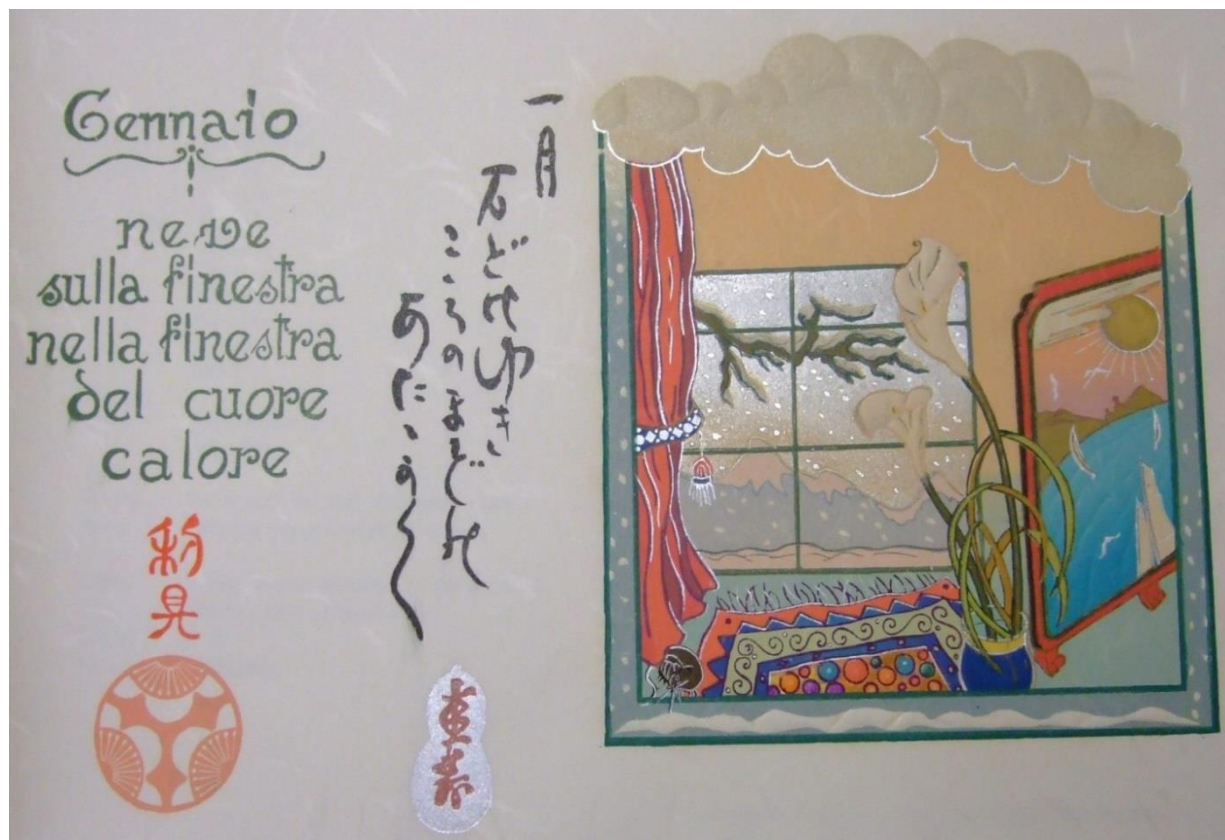 Gennaio
neve
sulla finestra
nella finestra
del cuore
calore
一月
まどにゆき
こころのまどに
あたゝかく